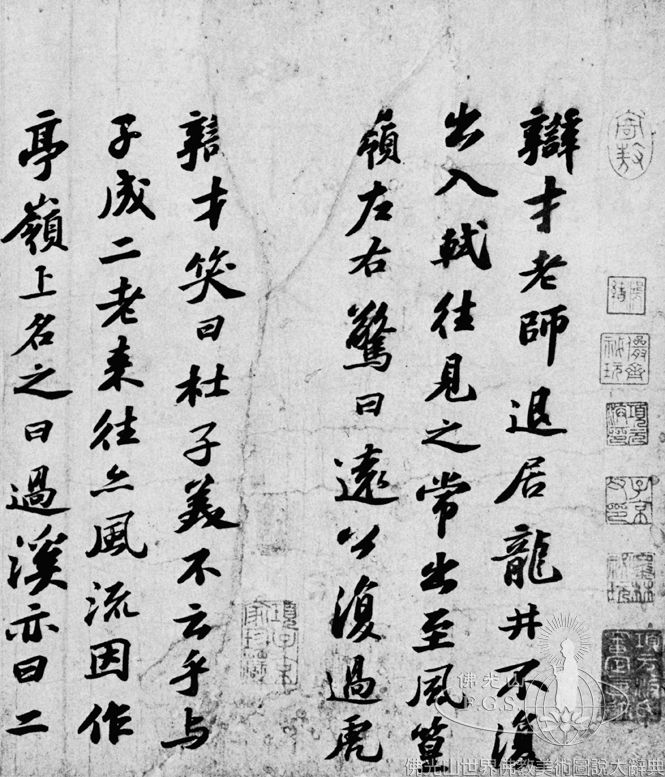 辯才老師退居龍井不復
出入軾往見之常出至風篁
嶺左右驚曰遠公復過虎
辯才笑曰杜子美不云乎与
子成二老来往亦風流因作
亭嶺上名之曰過溪亦曰二
項元汴印
子京父印
墨林秘玩
項子京家珍藏
佛光山
F.G.S.
佛光山世界佛教美術圖說大辭典